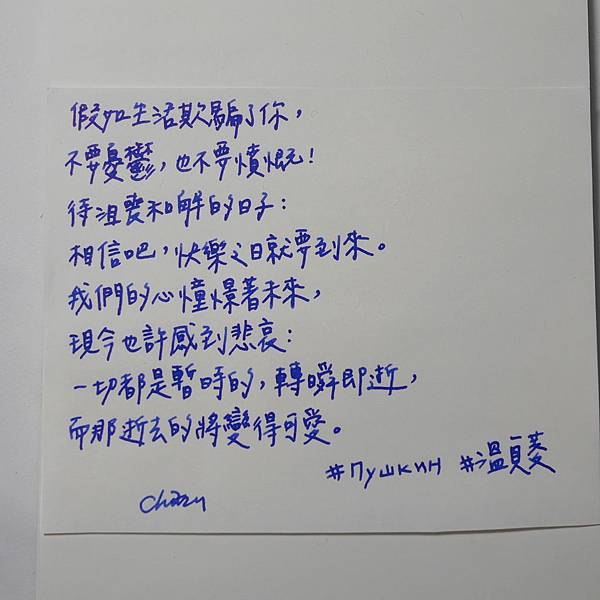 假如生活欺騙了你，
不要憂鬱，也不要憤慨！
待沮喪和解的日子：
相信吧，快樂之日就要到來。
我們的心憧憬著未來，
現今也許感到悲哀：
一切都是暫時的，轉瞬即逝，
而那逝去的將變得可愛。
#Пушкин #溫夏菱